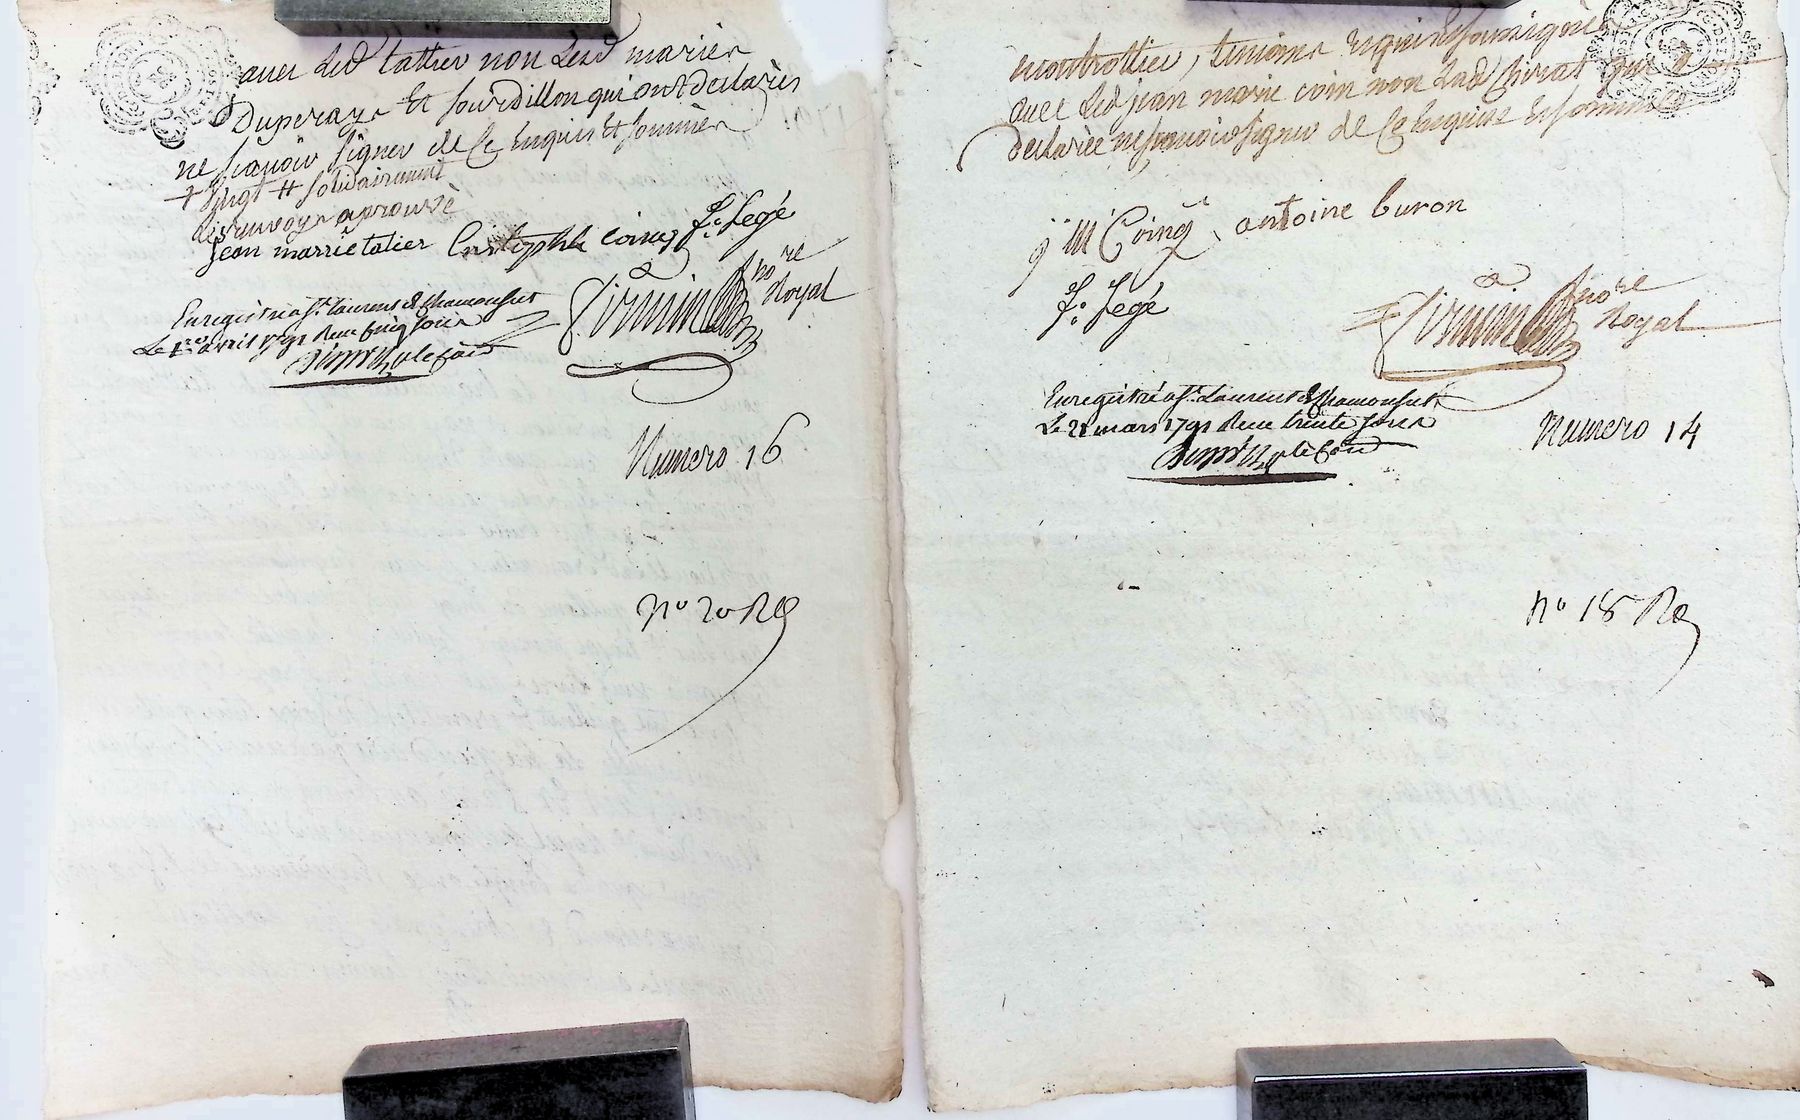 avec led tattier non lesd mariés
Duperay et sourdillon qui ont declarés
ne scavoir signer de ce enquis et sommés
+ vingt tt solidairement
les renvoys aprouvé
jean marrie tatier Cristophle coing f. Legé
not re
Royal
Enregistré a st. Laurent de Chamousset
Le 1er avril 1791 Reçu cinq sols
Numero 16
no 20 Re
montrottier, temoins requis et soussignés
avec led jean marie coin non lad Chirat qui a
declarée ne scavoir signer de ce enquise et sommée
j m Coing antoine Curon
f. Legé
no re
Royal
Enregistré a st. Laurent de Chamousset
Le 21 mars 1791 Reçu trente sous
Numero 14
no 18 Re